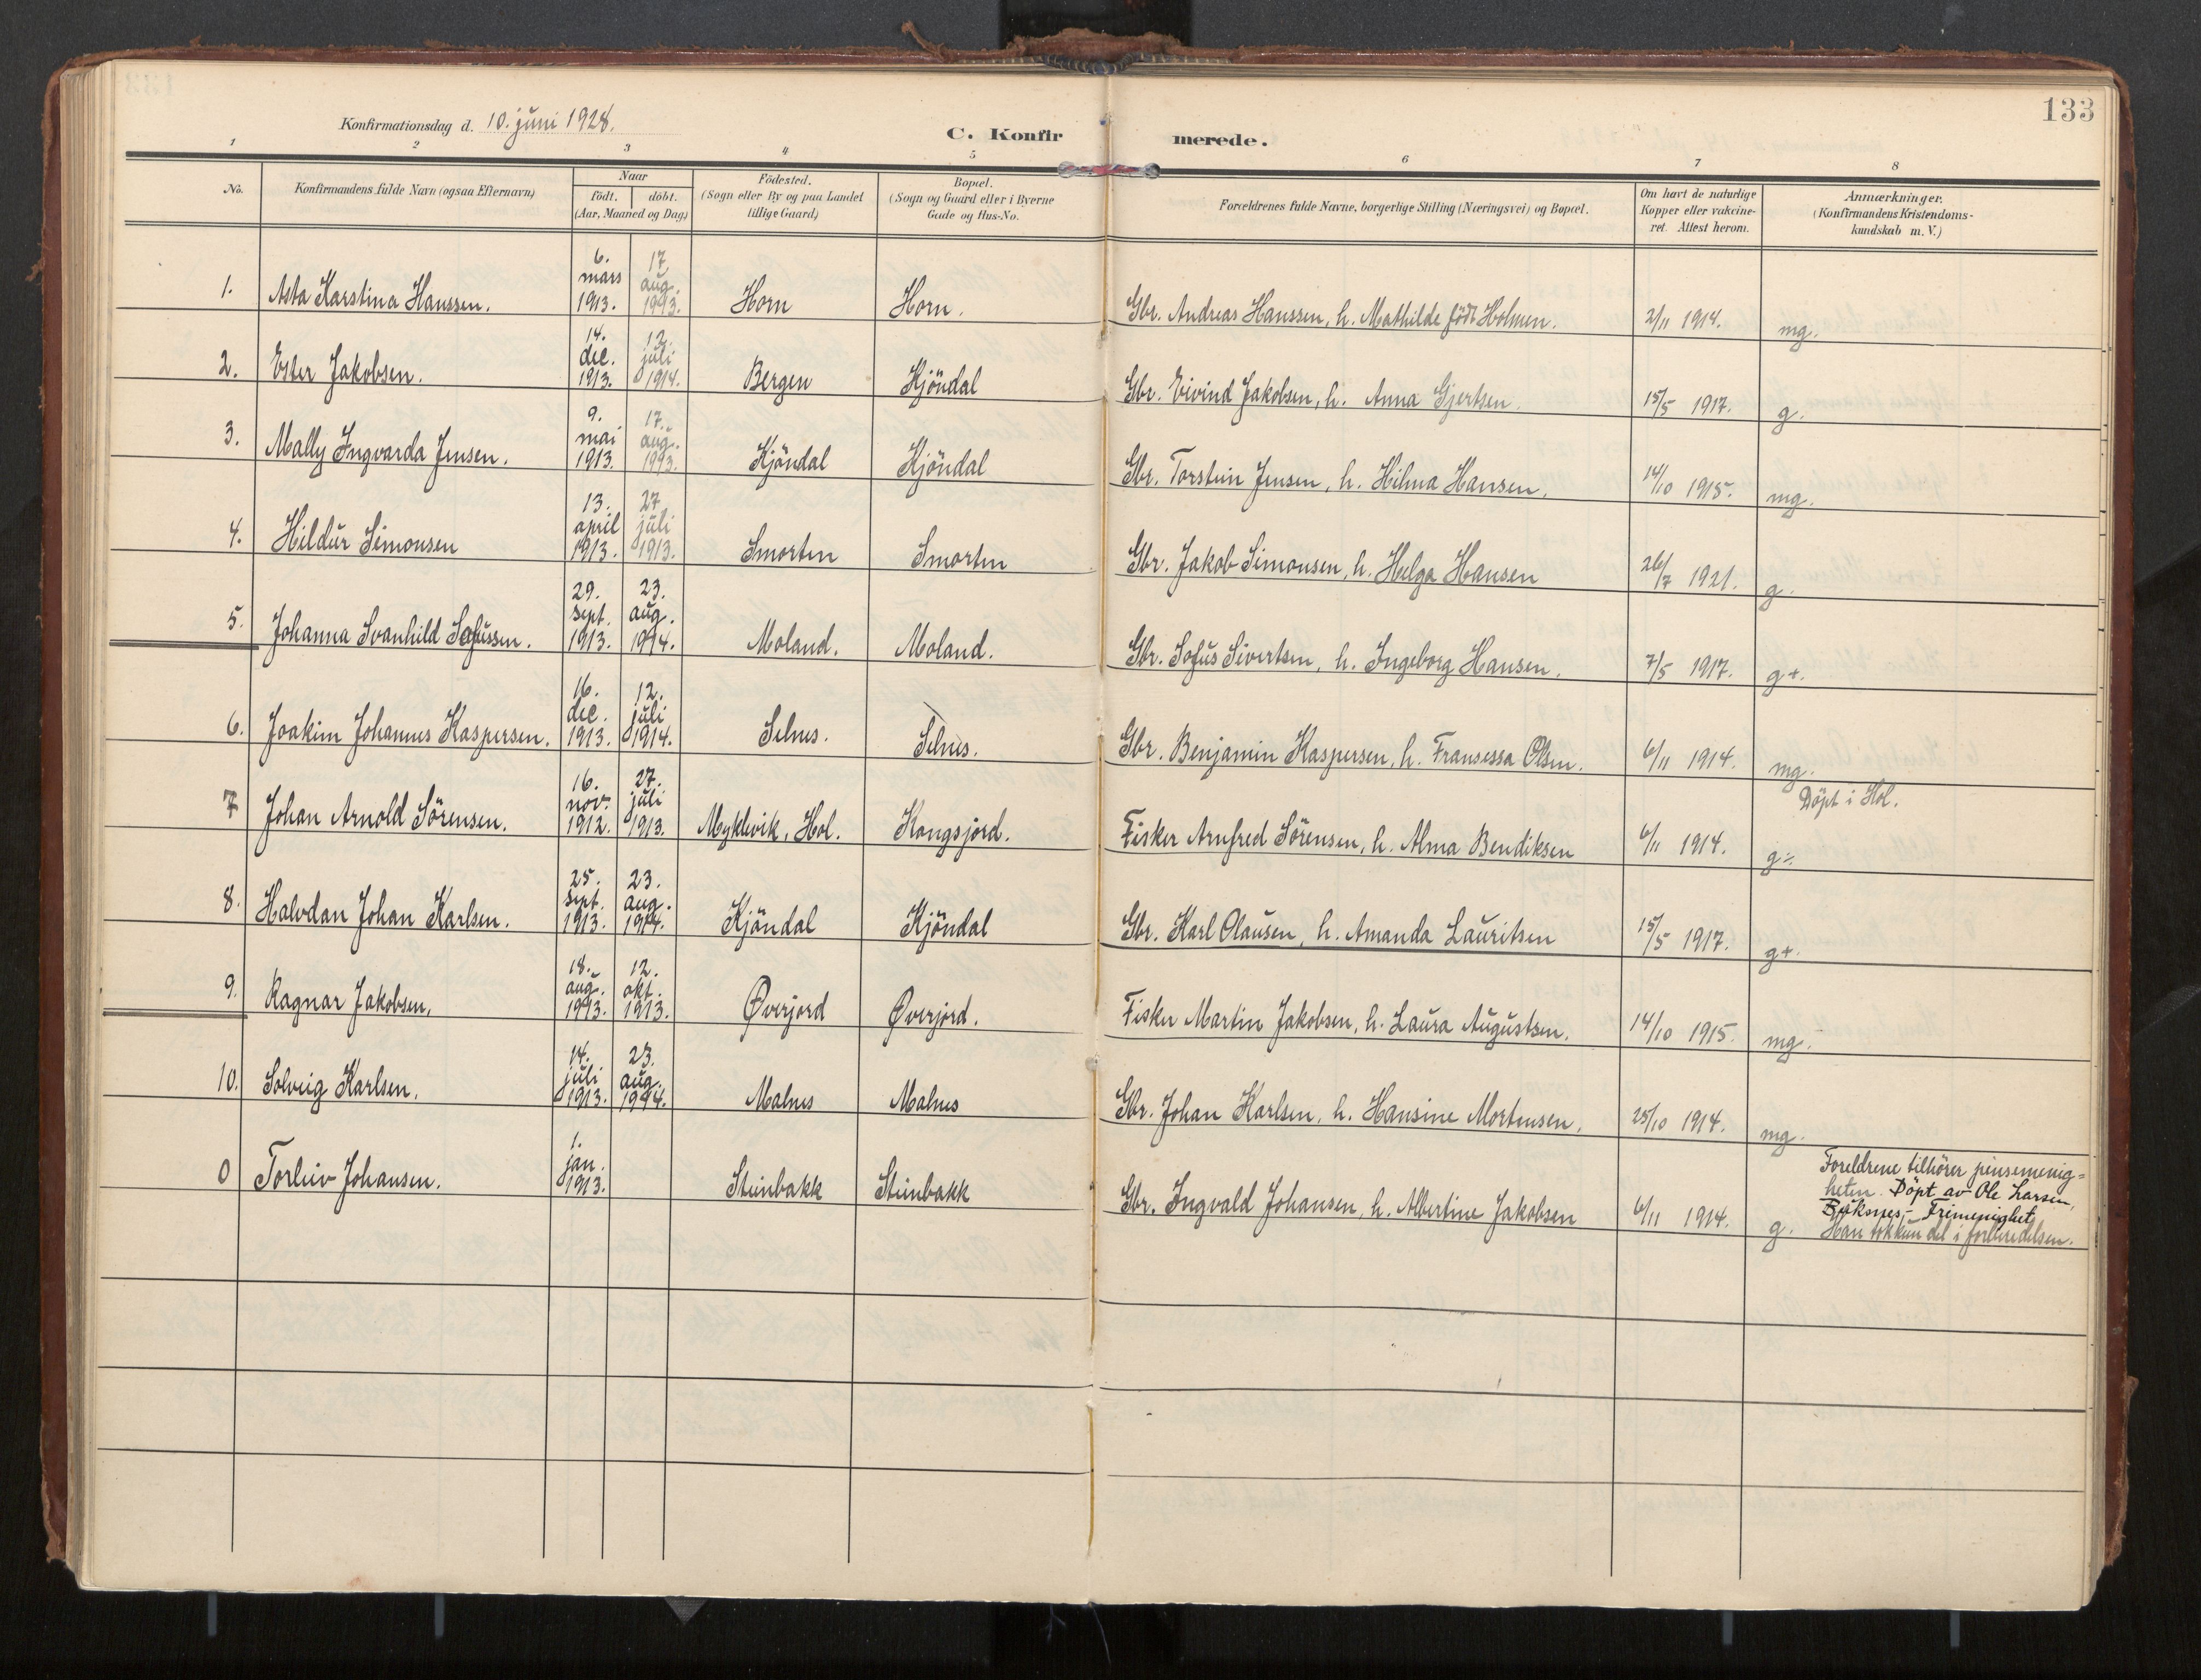 133
Konfirmationsdag d. 10. juni 1928.
C. Konfirmerede.
1 2 3 4 5 6 7 8
No. | Konfirmandens fulde Navn (ogsaa Efternavn) | Naar født. døbt. (Aar, Maaned og Dag) | Födested. (Sogn eller By og paa Landet tillige Gaard) | Bopæl. (Sogn og Gaard eller i Byerne Gade og Hus-No. | Forældrenes fulde Navne, borgerlige Stilling (Næringsvei) og Bopæl. | Om havt de naturlige Kopper eller vakcineret. Attest herom. | Anmærkninger. (Konfirmandens Kristendomskundskab m. V.)
1. Asta Karstina Hanssen. 6. mars 1913. 17. aug. 1913. Horn Horn. Gbr. Andreas Hanssen, h. Mathilde født Holmen. 2/11 1914. mg.
2. Ester Jakobsen. 14. dec. 1913. 12. juli 1914. Bergen Kjöndal Gbr. Eivind Jakobsen, h. Anna Gjertsen. 15/5 1917. g.
3. Mally Ingvarda Jensen. 9. mai 1913. 17. aug. 1913. Kjöndal Kjöndal Gbr. Torstein Jensen, h. Hilma Hansen. 14/10 1915. mg.
4. Hildur Simonsen 13. april 1913. 27 juli 1913. Smorten Smorten Gbr. Jakob Simonsen, h. Helga Hansen 26/7 1921. g.
5. Johanna Svanhild Sofussen. 29. sept. 1913. 23. aug. 1914. Moland. Moland. Gbr. Sofus Sivertsen, h. Ingeborg Hansen. 7/5 1917. g+.
6. Joakim Johannes Kaspersen. 16. dec. 1913. 12. juli 1914. Selnes. Selnes. Gbr. Benjamin Kaspersen, h. Fransessa Olsen. 6/11 1914. mg.
7 Johan Arnold Sörensen. 16. nov. 1912. 27. juli 1913. Myklevik, Hol. Kongsjord. Fisker Arnfred Sörensen, h. Alma Bendiksen 6/11 1914. g÷. Döpt i Hol.
8. Halvdan Johan Karlsen. 25. sept. 1913. 23. aug. 1914. Kjöndal Kjöndal Gbr. Karl Olausen, h. Amanda Lauritsen 15/5 1917. g+.
9. Ragnar Jakobsen. 18. aug. 1913. 12. okt. 1913. Øverjord Øverjord. Fisker Martin Jakobsen, h. Laura Augustsen. 14/10 1915. mg.
10. Solveig Karlsen. 14. juli 1913. 23. aug. 1914. Malnes Malnes Gbr. Johan Karlsen, h. Hansine Mortensen. 25/10 1914. mg.
0 Torleiv Johansen. 1. jan. 1913. Steinbakk Steinbakk Gbr. Ingvald Johansen, h. Albertine Jakobsen 6/11 1914. g.
Foreldrene tilhörer pinsemenig=
heten. Döpt av Ole Larsen,
Buksnes- Frimenighet
Han tok kun del i forberedelsen.